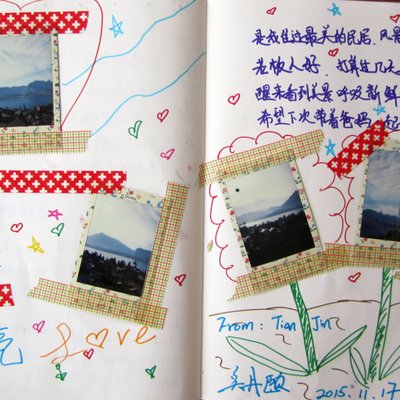 亮 Love
是我住过最美的民宿.风景
老板人好.打算住几天
醒来看到美景 呼吸新鲜
希望下次带着爸妈一起
From: Tian Jin
2015.11.17